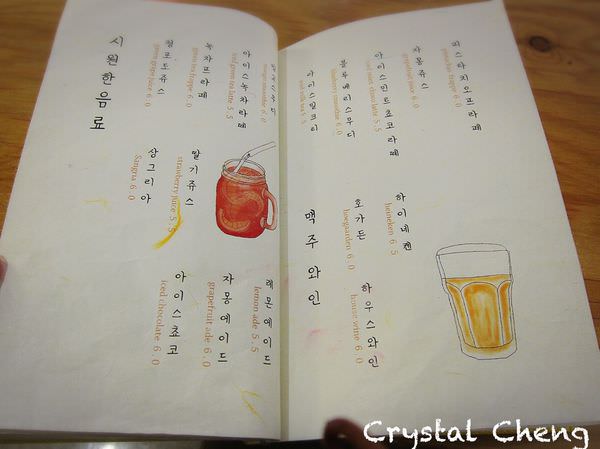 시원한음료
청포도쥬스
green grape juice 6.0
녹차프라페
green tea frappe 6.0
아이스녹차라떼
iced green tea latte 5.5
상그리아
Sangria 6.0
딸기쥬스
strawberry juice 5.5
아이스쵸코
iced chocolate 6.0
자몽에이드
grapefruit ade 6.0
레몬에이드
lemon ade 5.5
아이스밀크티
iced milk tea 5.5
블루베리스무디
blueberry smoothie 6.0
아이스민트쵸코라떼
iced mint choco latte 5.5
자몽쥬스
grapefruit juice 6.0
피스타치오프라페
pistachio frappe 6.0
맥주와인
호가든
hoegaarden 6.0
하이네켄
heineken 6.5
하우스와인
house wine 6.0
Crystal Cheng